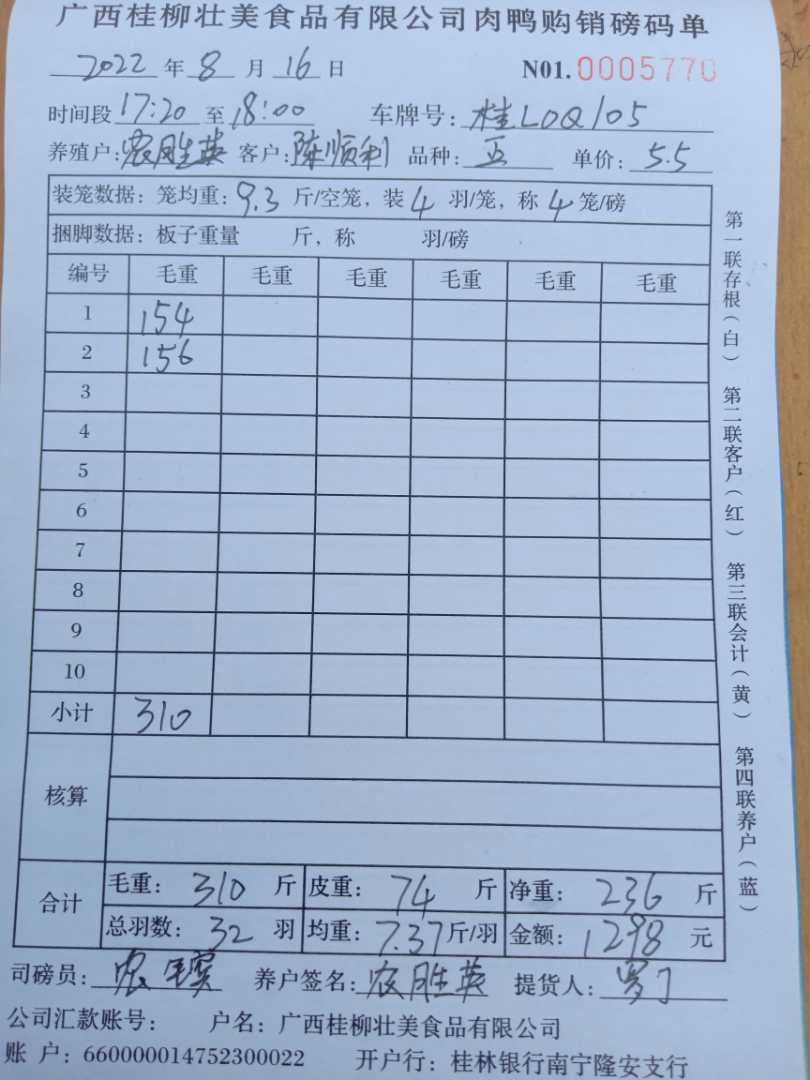 广西桂柳壮美食品有限公司肉鸭购销磅码单
2022 年 8 月 16 日 N01.0005770
时间段 17:20 至 18:00 车牌号: 桂LOQ105
养殖户: 农胜英 客户: 陈顺利 品种: 正 单价: 5.5
装笼数据: 笼均重: 9.3 斤/空笼, 装 4 羽/笼, 称 4 笼/磅
捆脚数据: 板子重量 斤, 称 羽/磅
编号 毛重 毛重 毛重 毛重 毛重 毛重
1 154
2 156
3
4
5
6
7
8
9
10
小计 310
核算
合计 毛重: 310 斤 皮重: 74 斤 净重: 236 斤
总羽数: 32 羽 均重: 7.37 斤/羽 金额: 1298 元
司磅员: 农 养户签名: 农胜英 提货人:
公司汇款账号: 户名: 广西桂柳壮美食品有限公司
账 户: 660000014752300022 开户行: 桂林银行南宁隆安支行
第一联存根(白) 第二联客户(红) 第三联会计(黄) 第四联养户(蓝)